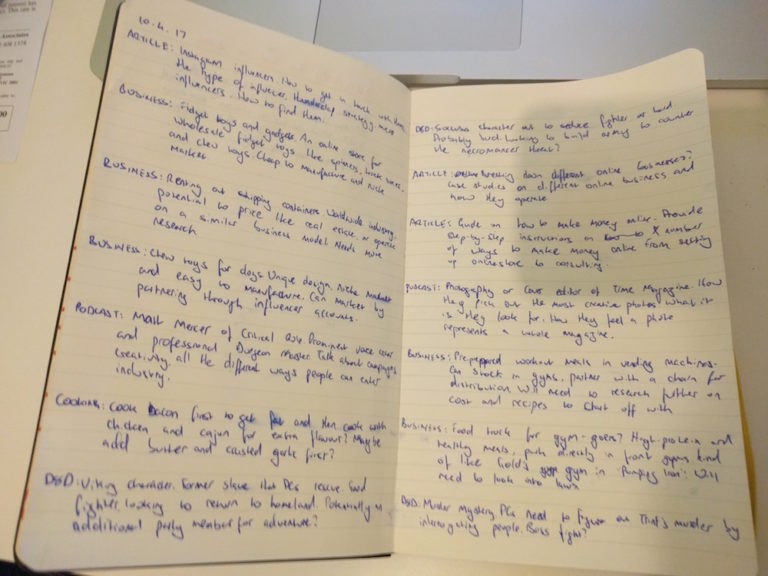 Associates
10.4.17
ARTICLE: Instagram influencers. How to get in touch with them,
the type of influencer, strategy, meet
influencers. How to find them.
BUSINESS: Fidget toys and gadgets. An online store for
wholesale fidget toys like spinners,
and chew toys. Cheap to manufacture and niche
market
BUSINESS: Renting out shipping containers. Worldwide industry,
potential to price like real estate, or operate
on a similar business model. Needs more
research.
BUSINESS: Chew toys for dogs. Unique design. Niche market
and easy to manufacture. Can market by
partnering through influencer accounts.
PODCAST: Matt Mercer of Critical Role. Prominent voice actor
and professional Dungeon Master. Talk about campaigns,
creativity, all the different ways people can enter
industry.
COOKING: Cook bacon first to get fat and then cook with
chicken and cajun for extra flavour? Maybe
add butter and crushed garlic first?
D&D: Viking character. Former slave that PCs rescue. Good
fighter looking to return to homeland. Potentially an
additional party member for adventure?
D&D: character out to seduce fighter or bard.
Probably bard. Looking to build army to counter
the necromancer threat?
ARTICLE: Breaking down different online businesses?
Case studies on different online business and
how they operate
ARTICLE: Guide on how to make money online. Provide
step-by-step instructions on how to X number
of ways to make money online from setting
up online store to consulting.
PODCAST: Photography or Cover editor of Time Magazine. How
they pick out the most creative photos. What it
is they look for. How they feel a photo
represents a whole magazine.
BUSINESS: Prepared workout meals in vending machines.
Can stock in gyms, partner with a chain for
distribution. Will need to research further on
cost and recipes to start off with
BUSINESS: Food truck for gym-goers? High-protein and
healthy meals, park directly in front gyms, kind
of like Gold's gym in 'Pumping Iron'. Will
need to look into laws
D&D: Murder Mystery. PCs need to figure out murder by
interrogating people. Boss fight?